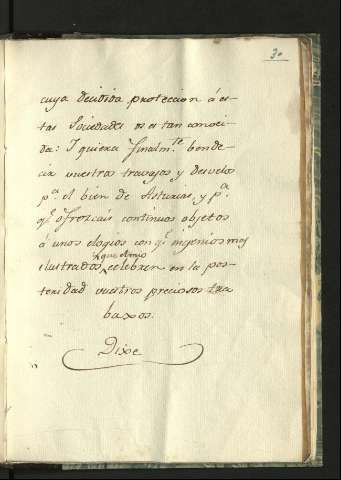 30
cuya decidida proteccion á es-
tas Sociedades os es tan conoci-
da: Y quiera finalm.te bende-
cir vuestros trabajos, y desvelos
p.a el bien de Asturias, y p.a
q.e ofrezcais continuos objetos
á unos elogios con q.e ingenios mas
que el mio
ilustrados, celebren en la pos-
teridad vuestros preciosos tra
baxos.
Dixe